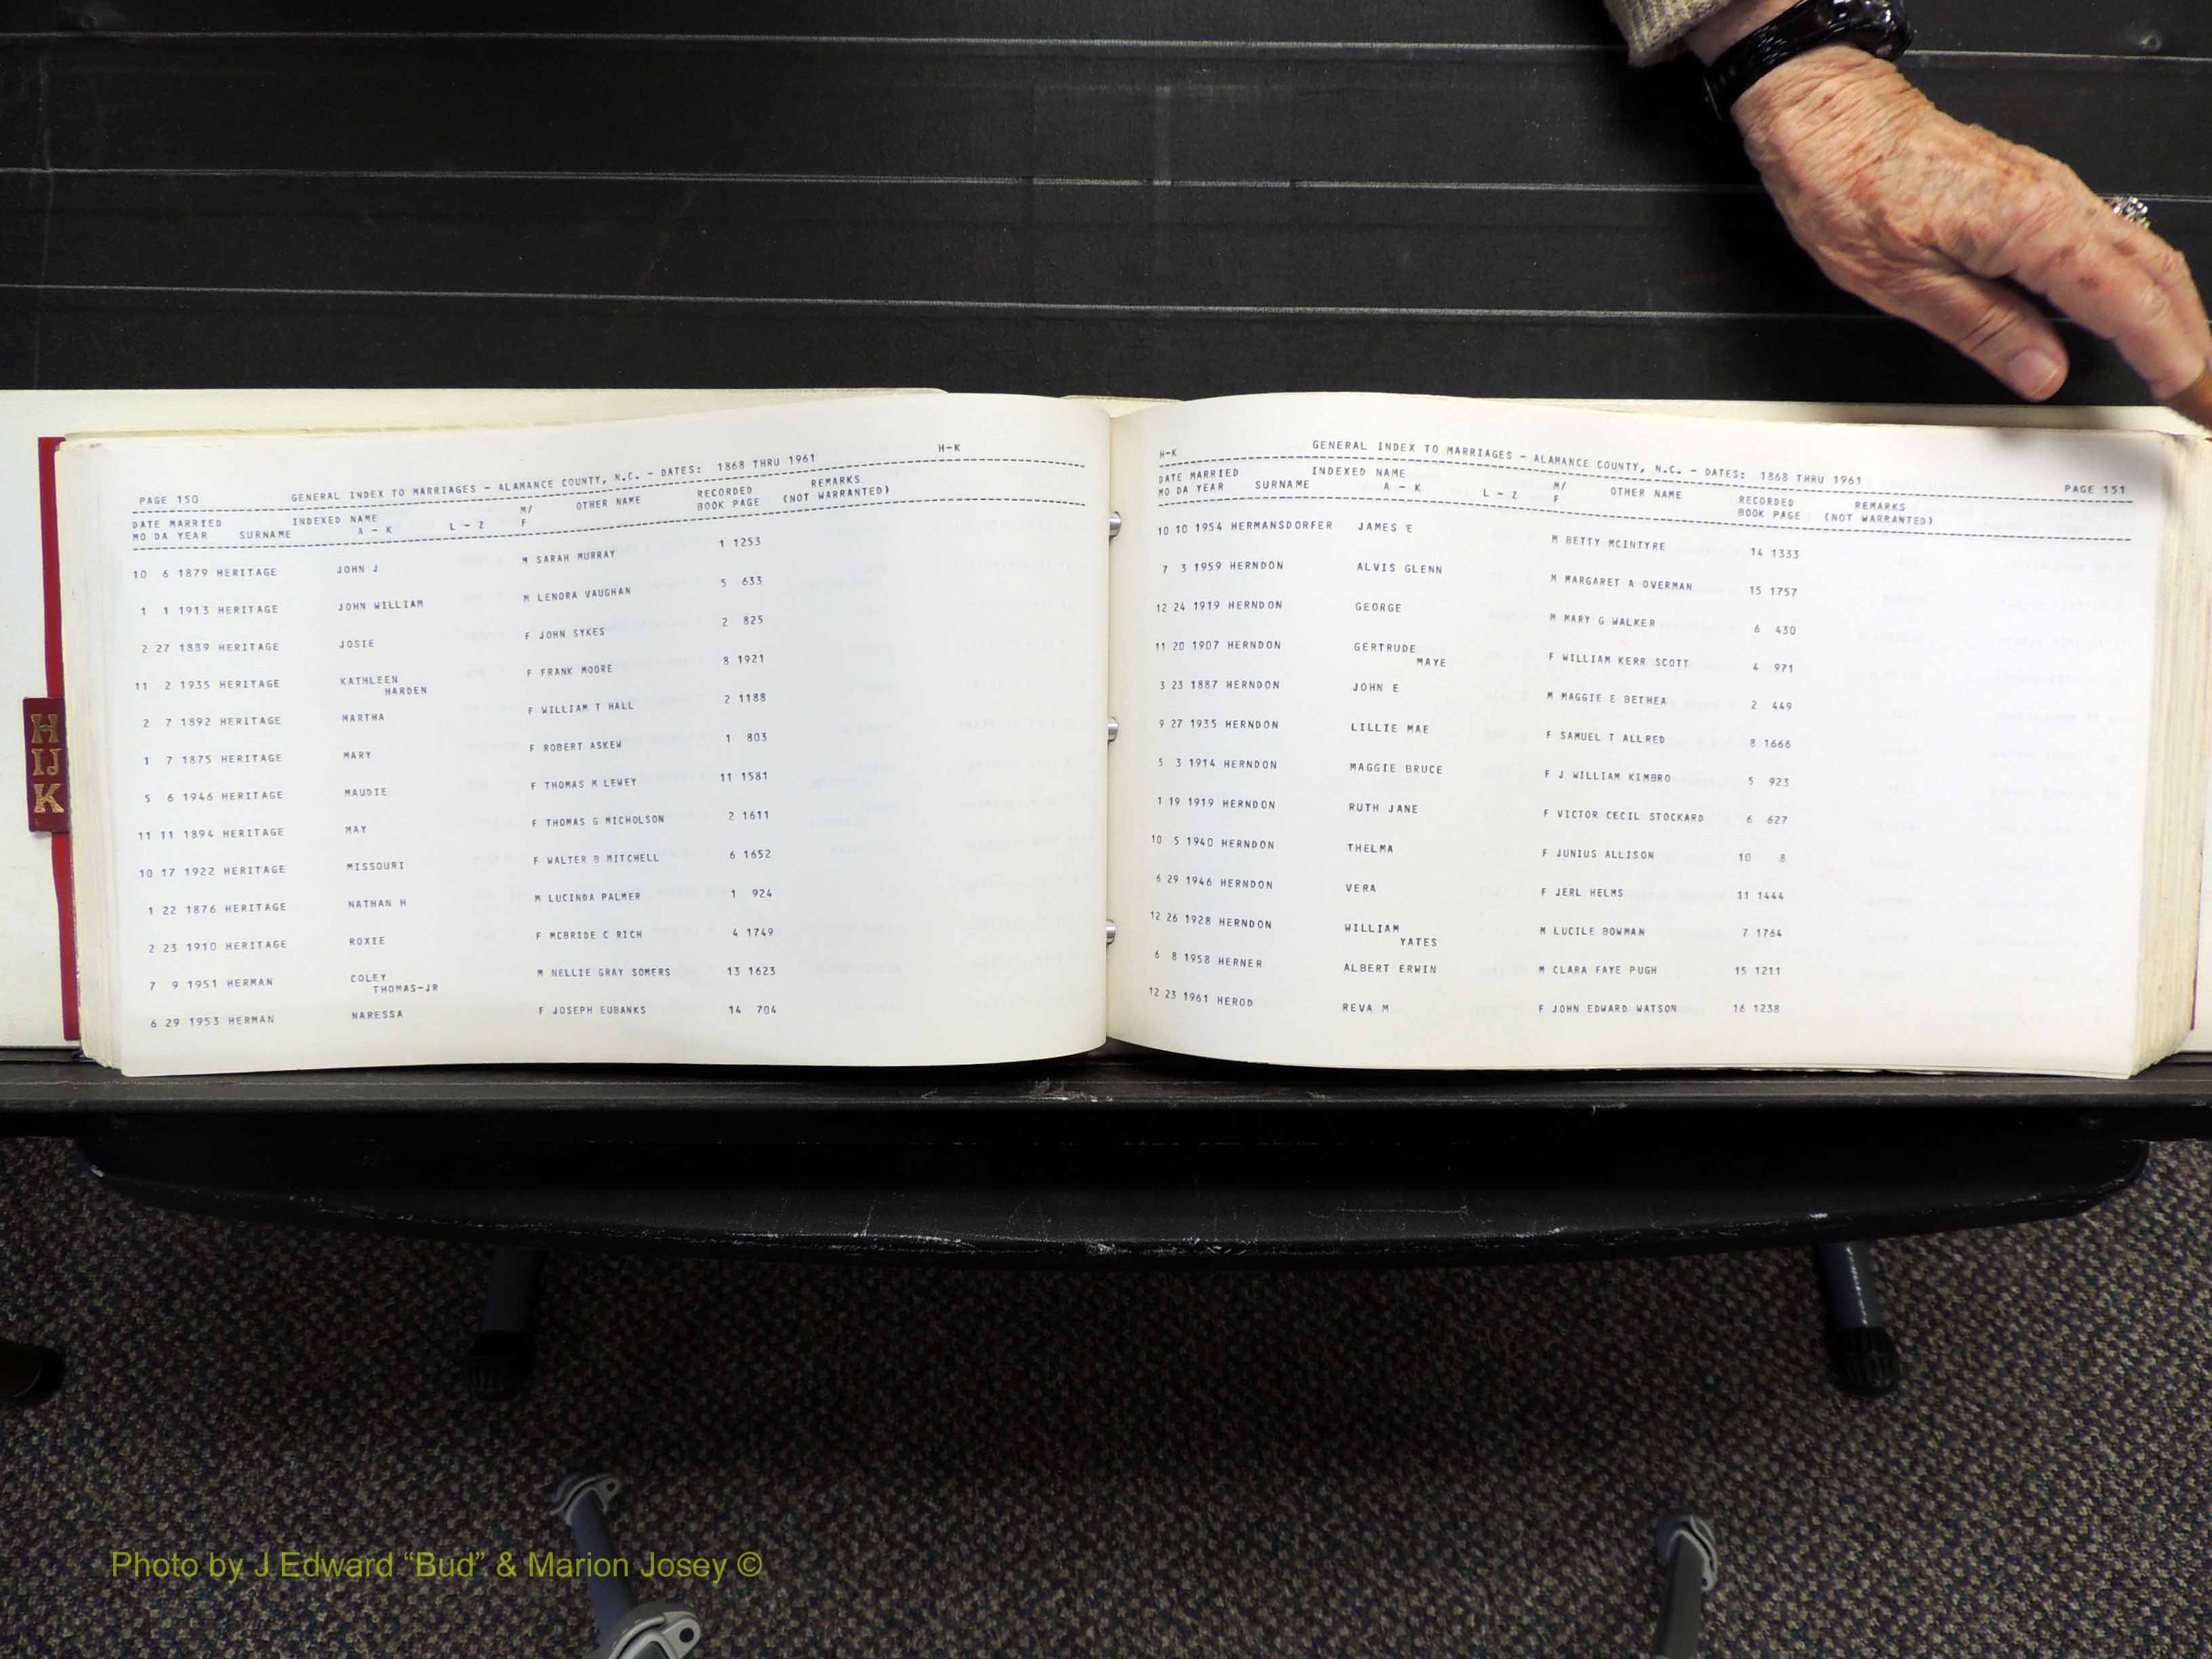 PAGE 150 GENERAL INDEX TO MARRIAGES - ALAMANCE COUNTY, N.C. - DATES: 1868 THRU 1961 H-K
DATE MARRIED INDEXED NAME M/ OTHER NAME RECORDED REMARKS
MO DA YEAR SURNAME A - K L - Z F BOOK PAGE (NOT WARRANTED)
10 6 1879 HERITAGE JOHN J M SARAH MURRAY 1 1253
1 1 1913 HERITAGE JOHN WILLIAM M LENORA VAUGHAN 5 633
2 27 1889 HERITAGE JOSIE F JOHN SYKES 2 825
11 2 1935 HERITAGE KATHLEEN F FRANK MOORE 8 1921
HARDEN
2 7 1892 HERITAGE MARTHA F WILLIAM T HALL 2 1188
1 7 1875 HERITAGE MARY F ROBERT ASKEW 1 803
5 6 1946 HERITAGE MAUDIE F THOMAS M LEWEY 11 1581
11 11 1894 HERITAGE MAY F THOMAS G MICHOLSON 2 1611
10 17 1922 HERITAGE MISSOURI F WALTER B MITCHELL 6 1652
1 22 1876 HERITAGE NATHAN H M LUCINDA PALMER 1 924
2 23 1910 HERITAGE ROXIE F MCBRIDE C RICH 4 1749
7 9 1951 HERMAN COLEY M NELLIE GRAY SOMERS 13 1623
THOMAS-JR
6 29 1953 HERMAN NARESSA F JOSEPH EUBANKS 14 704
H-K GENERAL INDEX TO MARRIAGES - ALAMANCE COUNTY, N.C. - DATES: 1868 THRU 1961 PAGE 151
DATE MARRIED INDEXED NAME M/ OTHER NAME RECORDED REMARKS
MO DA YEAR SURNAME A - K L - Z F BOOK PAGE (NOT WARRANTED)
10 10 1954 HERMANSDORFER JAMES E M BETTY MCINTYRE 14 1333
7 3 1959 HERNDON ALVIS GLENN M MARGARET A OVERMAN 15 1757
12 24 1919 HERNDON GEORGE M MARY G WALKER 6 430
11 20 1907 HERNDON GERTRUDE F WILLIAM KERR SCOTT 4 971
MAYE
3 23 1887 HERNDON JOHN E M MAGGIE E BETHEA 2 449
9 27 1935 HERNDON LILLIE MAE F SAMUEL T ALLRED 8 1666
5 3 1914 HERNDON MAGGIE BRUCE F J WILLIAM KIMBRO 5 923
1 19 1919 HERNDON RUTH JANE F VICTOR CECIL STOCKARD 6 627
10 5 1940 HERNDON THELMA F JUNIUS ALLISON 10 8
6 29 1946 HERNDON VERA F JERL HELMS 11 1444
12 26 1928 HERNDON WILLIAM M LUCILE BOWMAN 7 1764
YATES
6 8 1958 HERNER ALBERT ERWIN M CLARA FAYE PUGH 15 1211
12 23 1961 HEROD REVA M F JOHN EDWARD WATSON 16 1238
H
IJ
K
Photo by J Edward “Bud” & Marion Josey ©